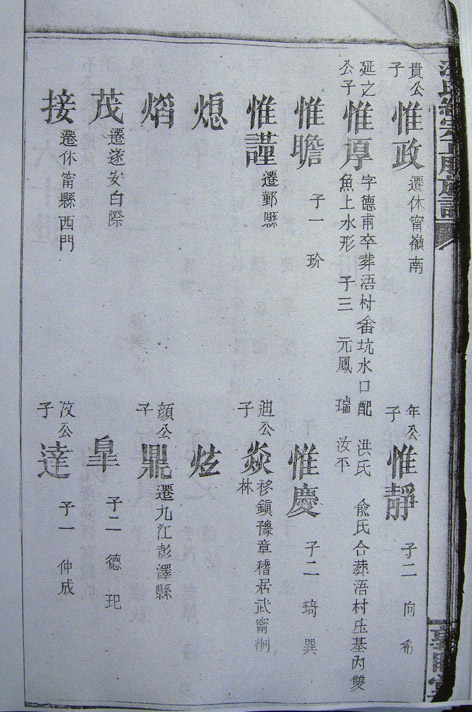 貴公子 惟政 遷休甯嶺南
年公子 惟靜 子二 向 希
延之公子 惟厚 字德甫卒葬浯村畬坑水口配 洪氏 兪氏合葬浯村庄基內雙
魚上水形 子三 元鳳 瑞 汝平
惟瞻 子一 玠
惟慶 子二 琦 巽
惟謹 遷鄞縣
公子 焱 移鎮豫章稽居武甯桐林
熄
炫
熖
顔公子 鼎 遷九江彭澤縣
茂 遷遂安白際
阜 子二 德 玘
接 遷休甯縣西門
汶公子 達 子一 仲成